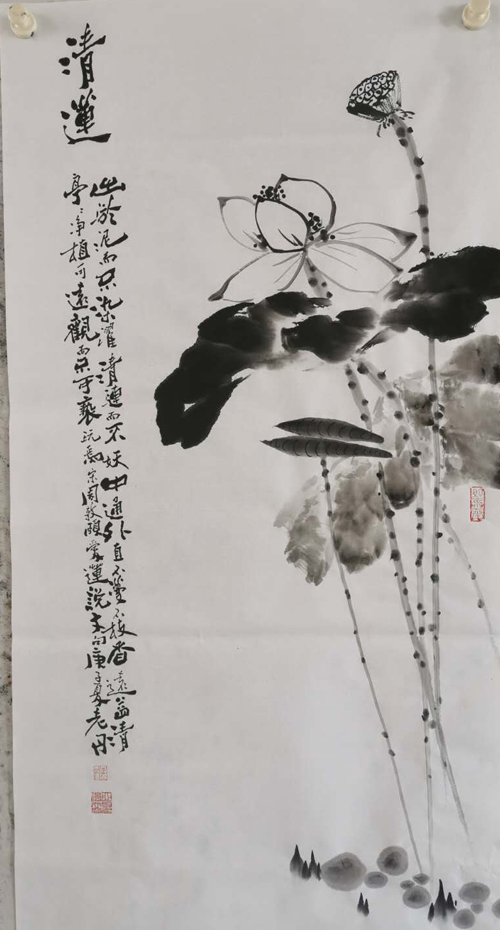 清蓮
出於泥而不染濯清漣而不妖中通外直不蔓不枝香遠益清
亭亭淨植可遠觀而不可褻玩焉宋周敦頤愛蓮說庚子夏老